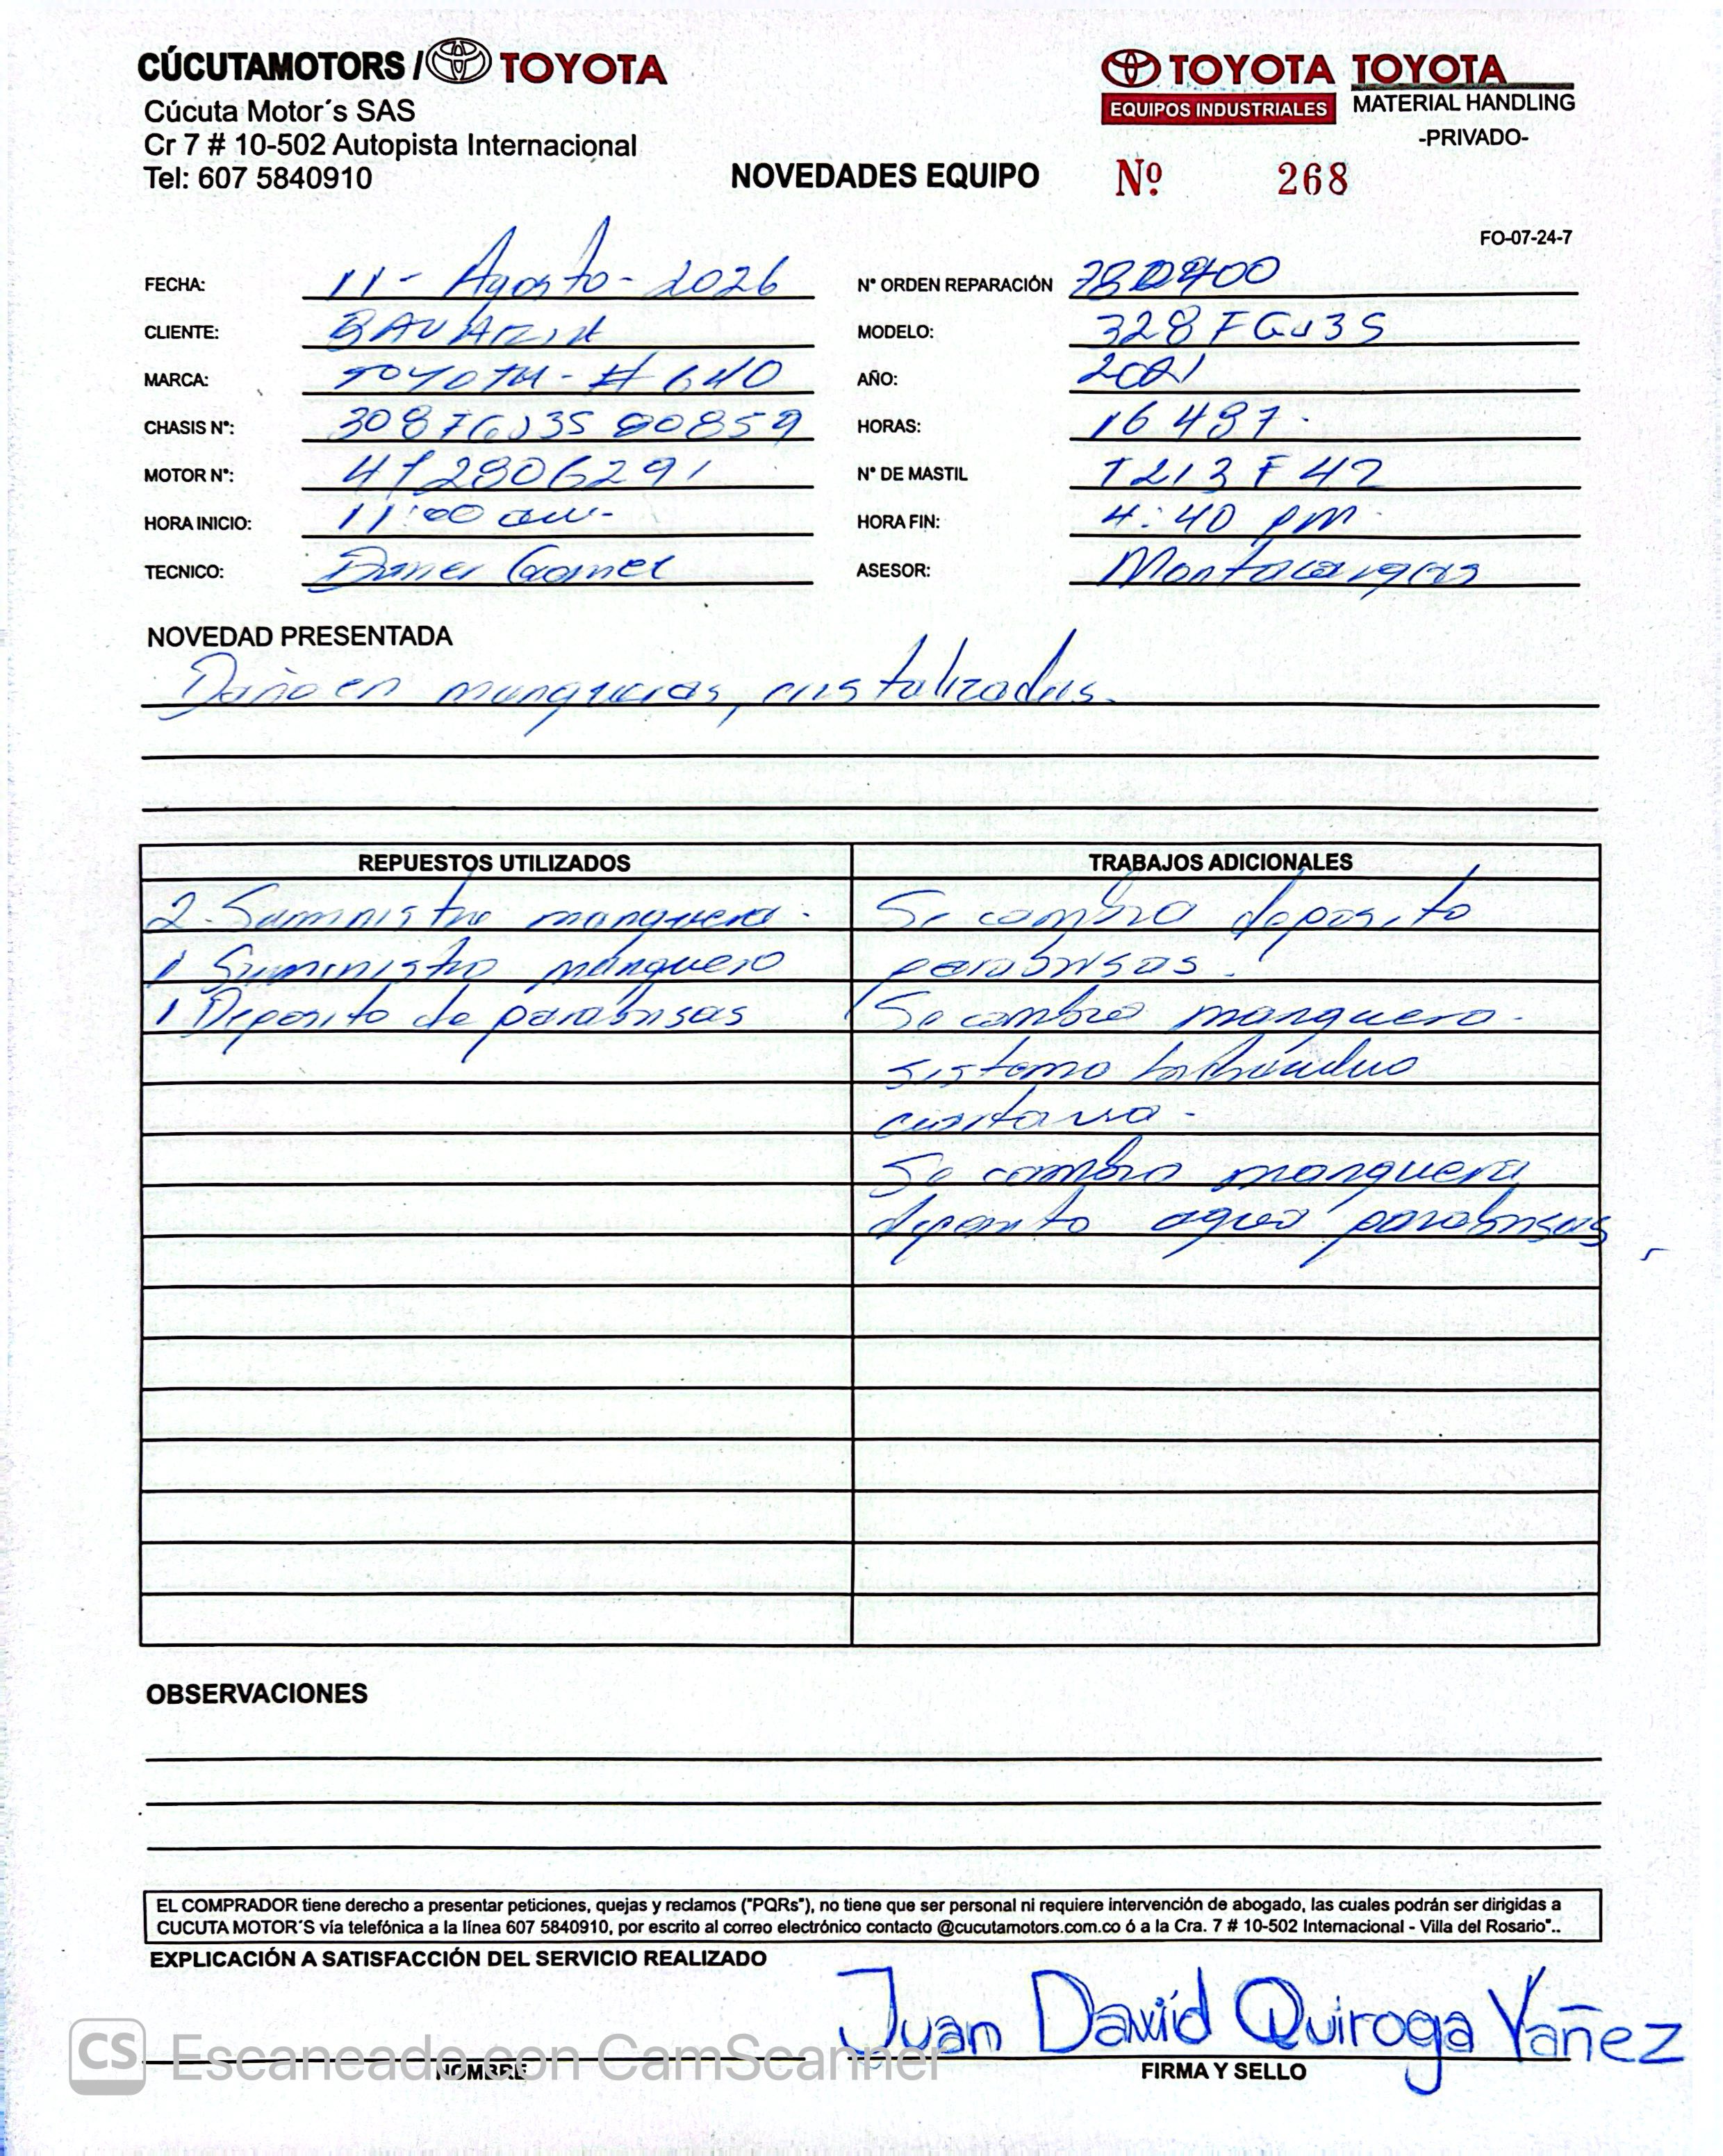 CÚCUTAMOTORS / TOYOTA
Cúcuta Motor´s SAS
Cr 7 # 10-502 Autopista Internacional
Tel: 607 5840910
TOYOTA
EQUIPOS INDUSTRIALES
TOYOTA
MATERIAL HANDLING
-PRIVADO-
NOVEDADES EQUIPO
Nº 268
FO-07-24-7
FECHA: 11 - Agosto - 2026
N° ORDEN REPARACIÓN
CLIENTE: BAVARIA
MODELO:
MARCA: TOYOTA - # 640
AÑO: 2021
CHASIS N°:
HORAS: 16 487
MOTOR N°:
N° DE MASTIL
HORA INICIO: 11:00 am-
HORA FIN: 4:40 pm
TECNICO:
ASESOR: Montacargas
NOVEDAD PRESENTADA
Daño en mangueras, cristalizadas.
REPUESTOS UTILIZADOS
2 Suministro manguera.
1 Suministro manguera
1 Deposito de parabrisas
TRABAJOS ADICIONALES
Se cambia deposito
parabrisas.
Se cambia manguera.
sistema
Se cambia manguera
deposito agua parabrisas
OBSERVACIONES
EL COMPRADOR tiene derecho a presentar peticiones, quejas y reclamos ("PQRs"), no tiene que ser personal ni requiere intervención de abogado, las cuales podrán ser dirigidas a
CUCUTA MOTOR´S vía telefónica a la línea 607 5840910, por escrito al correo electrónico contacto @cucutamotors.com.co ó a la Cra. 7 # 10-502 Internacional - Villa del Rosario"..
EXPLICACIÓN A SATISFACCIÓN DEL SERVICIO REALIZADO
Juan David Quiroga Yañez
NOMBRE
FIRMA Y SELLO
CS Escaneado con CamScanner